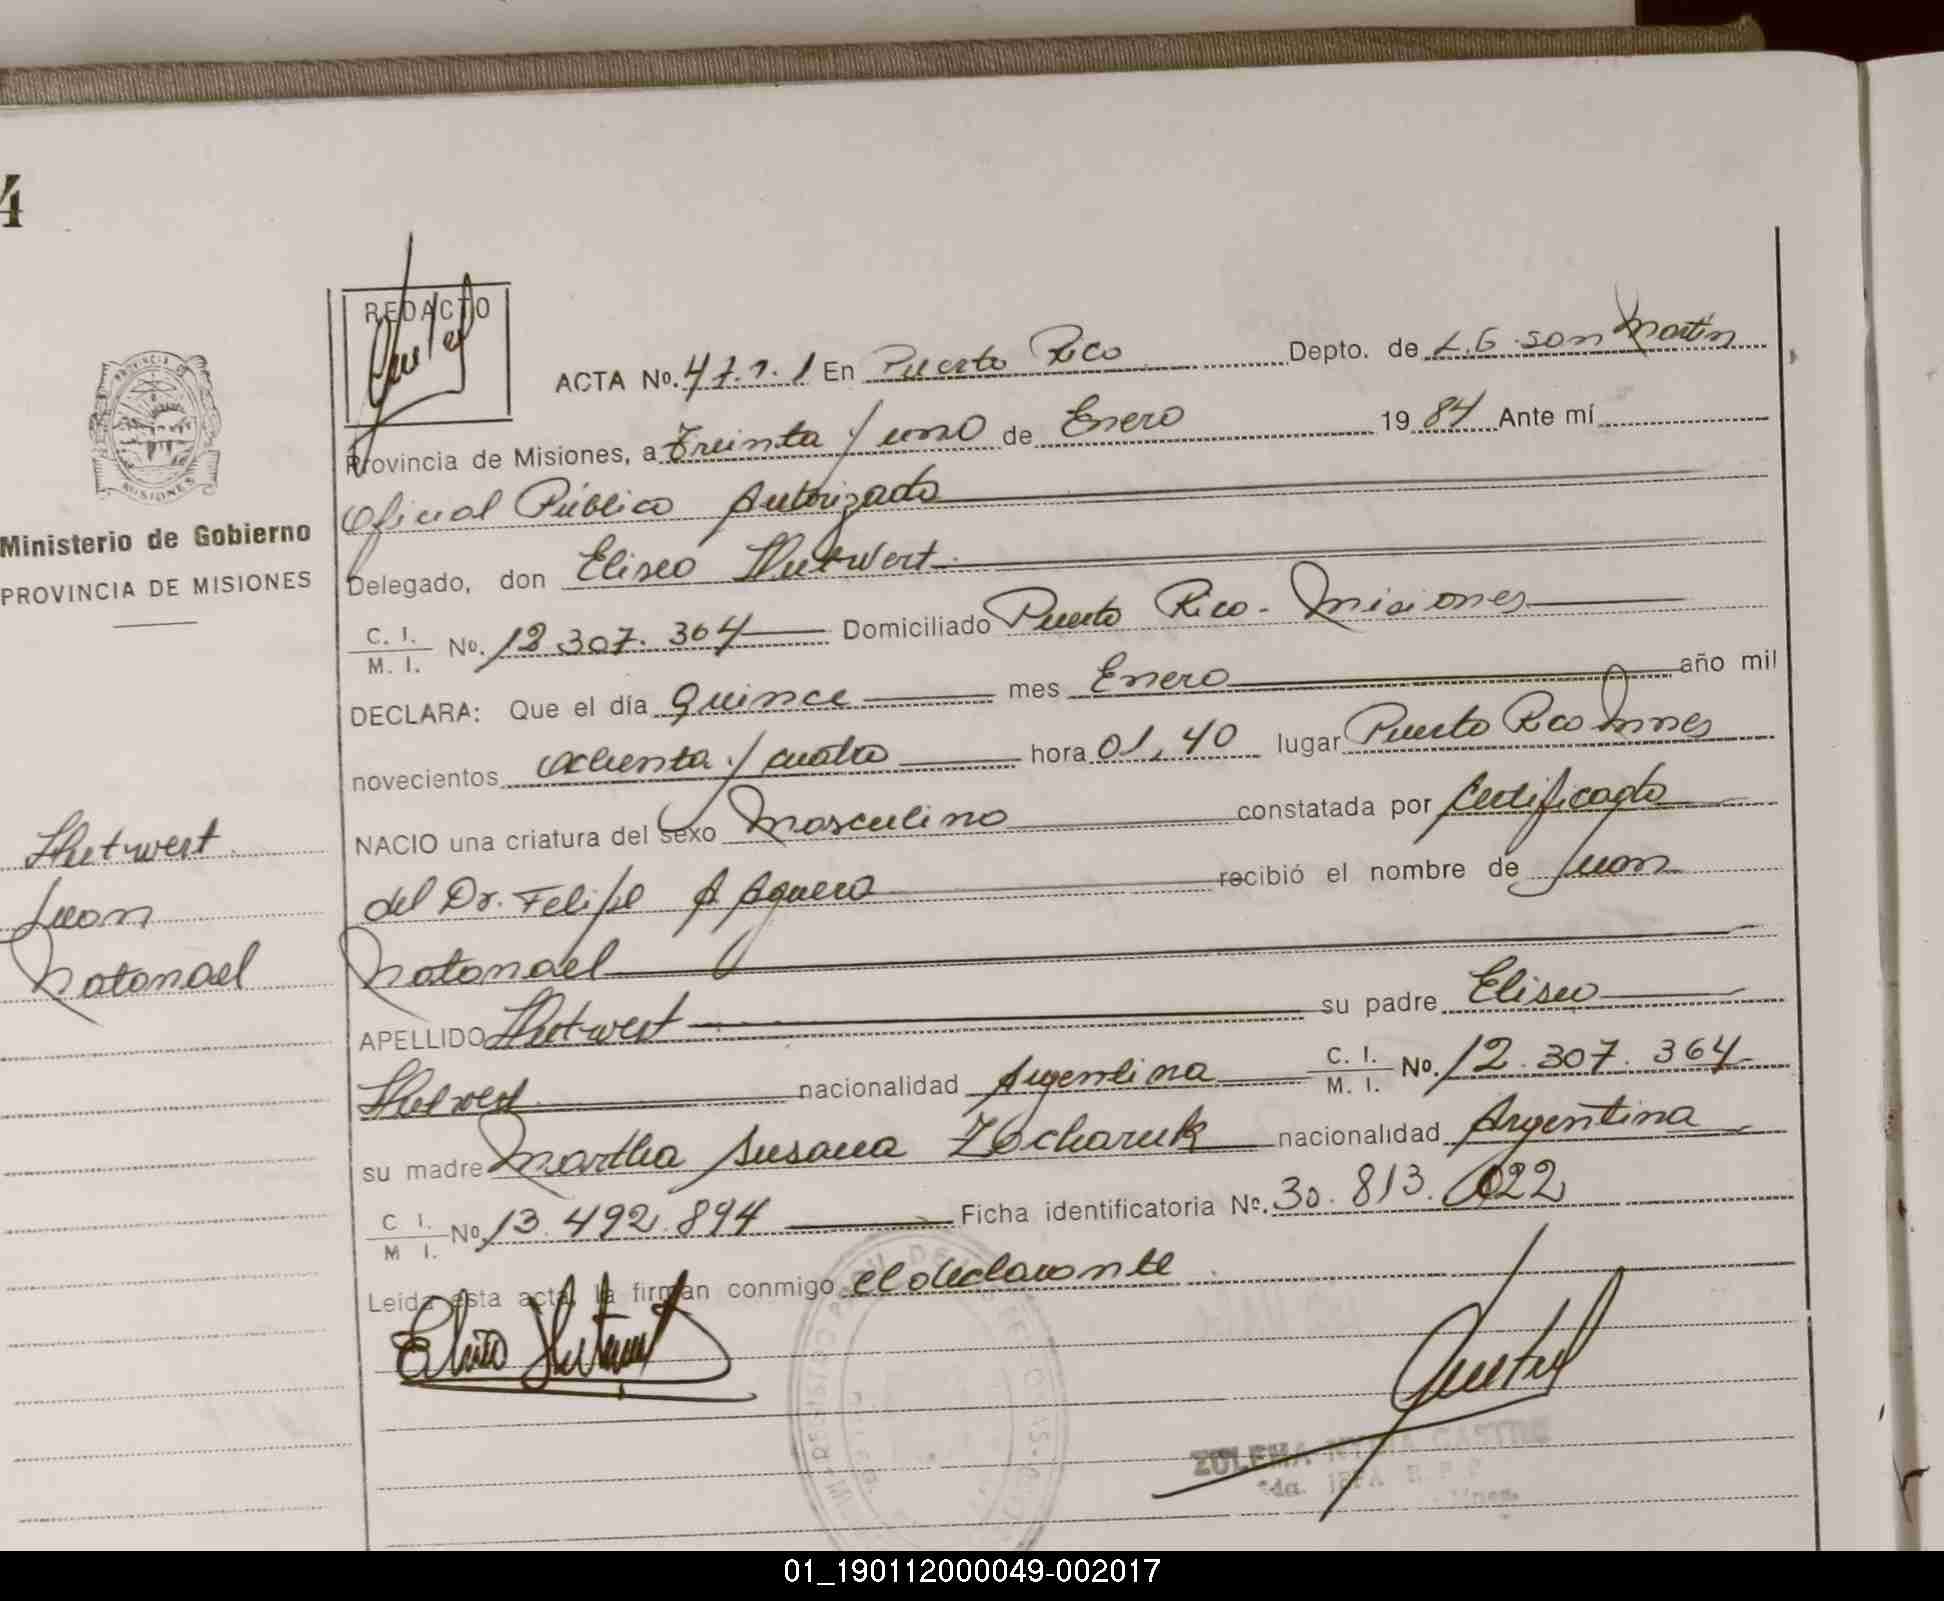 4
REDACTO
ACTA No. 47.T.1 En Puerto Rico Depto. de L.G. San Martin
Provincia de Misiones, a Treinta y uno de Enero 1984 Ante mí
Oficial Público Autorizado
Ministerio de Gobierno
PROVINCIA DE MISIONES
Delegado, don Eliseo Hutwert
C. I. / M. I. No. 12.307.364 Domiciliado Puerto Rico - Misiones
DECLARA: Que el día Quince mes Enero año mil
novecientos ochenta y cuatro hora 01,40 lugar Puerto Rico Mnes
NACIO una criatura del sexo Masculino constatada por Certificado
del Dr. Felipe A Aguero recibió el nombre de Juan
Natanael
Hutwert
Juan
Natanael
APELLIDO Hutwert su padre Eliseo
Hutwert nacionalidad Argentina C. I. / M. I. No. 12.307.364
su madre Martha Susana Zocharuk nacionalidad Argentina
C I. / M I. No. 13.492.894 Ficha identificatoria No. 30.813.022
Leída esta acta, la firman conmigo el declarante
ZULEMA CASTRO
01_190112000049-002017